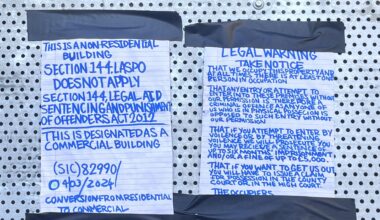 THIS IS A NON RESIDENTIAL
BUILDING
SECTION 144. LASPO
DOES NOT APPLY
SECTION 144, LEGAL AID
SENTENCING AND PUNISHMENT
OF OFFENDERS ACT 2012
THIS IS DESIGNATED AS A
COMMERCIAL BUILDING
(SIC) 82990/
4 2024/
CONVERSION FROM RESIDENTIAL
TO COMMERCIAL
LEGAL WARNING
TAKE NOTICE
THAT WE OCCUPY THIS PROPERTY AND
AT ALL TIMES THERE IS AT LEAST ONE
PERSON IN OCCUPATION
THAT ANY ENTRY OR ATTEMPT TO
ENTER IN TO THESE PREMISES WITHOUT
OUR PERMISSION IS THEREFORE A
CRIMINAL OFFENCE AS ANY ONE OF
US WHO IS IN POSSESSION IS
OPPOSED TO SUCH ENTRY WITHOUT
OUR PERMISSION
THAT IF YOU ATTEMPT TO ENTER BY
VIOLENCE OR BY THREATENING
VIOLENCE WE WILL PROSECUTE YOU.
YOU MAY RECEIVE A SENTENCE OF
UP TO SIX MONTHS IMPRISONMENT
AND/OR A FINE OF UP TO £5,000.
THAT IF YOU WANT TO GET US OUT
YOU WILL HAVE TO ISSUE A CLAIM
FOR POSSESSION IN THE COUNTY
COURT OR, IN THE HIGH COURT.
THE OCCUPIERS